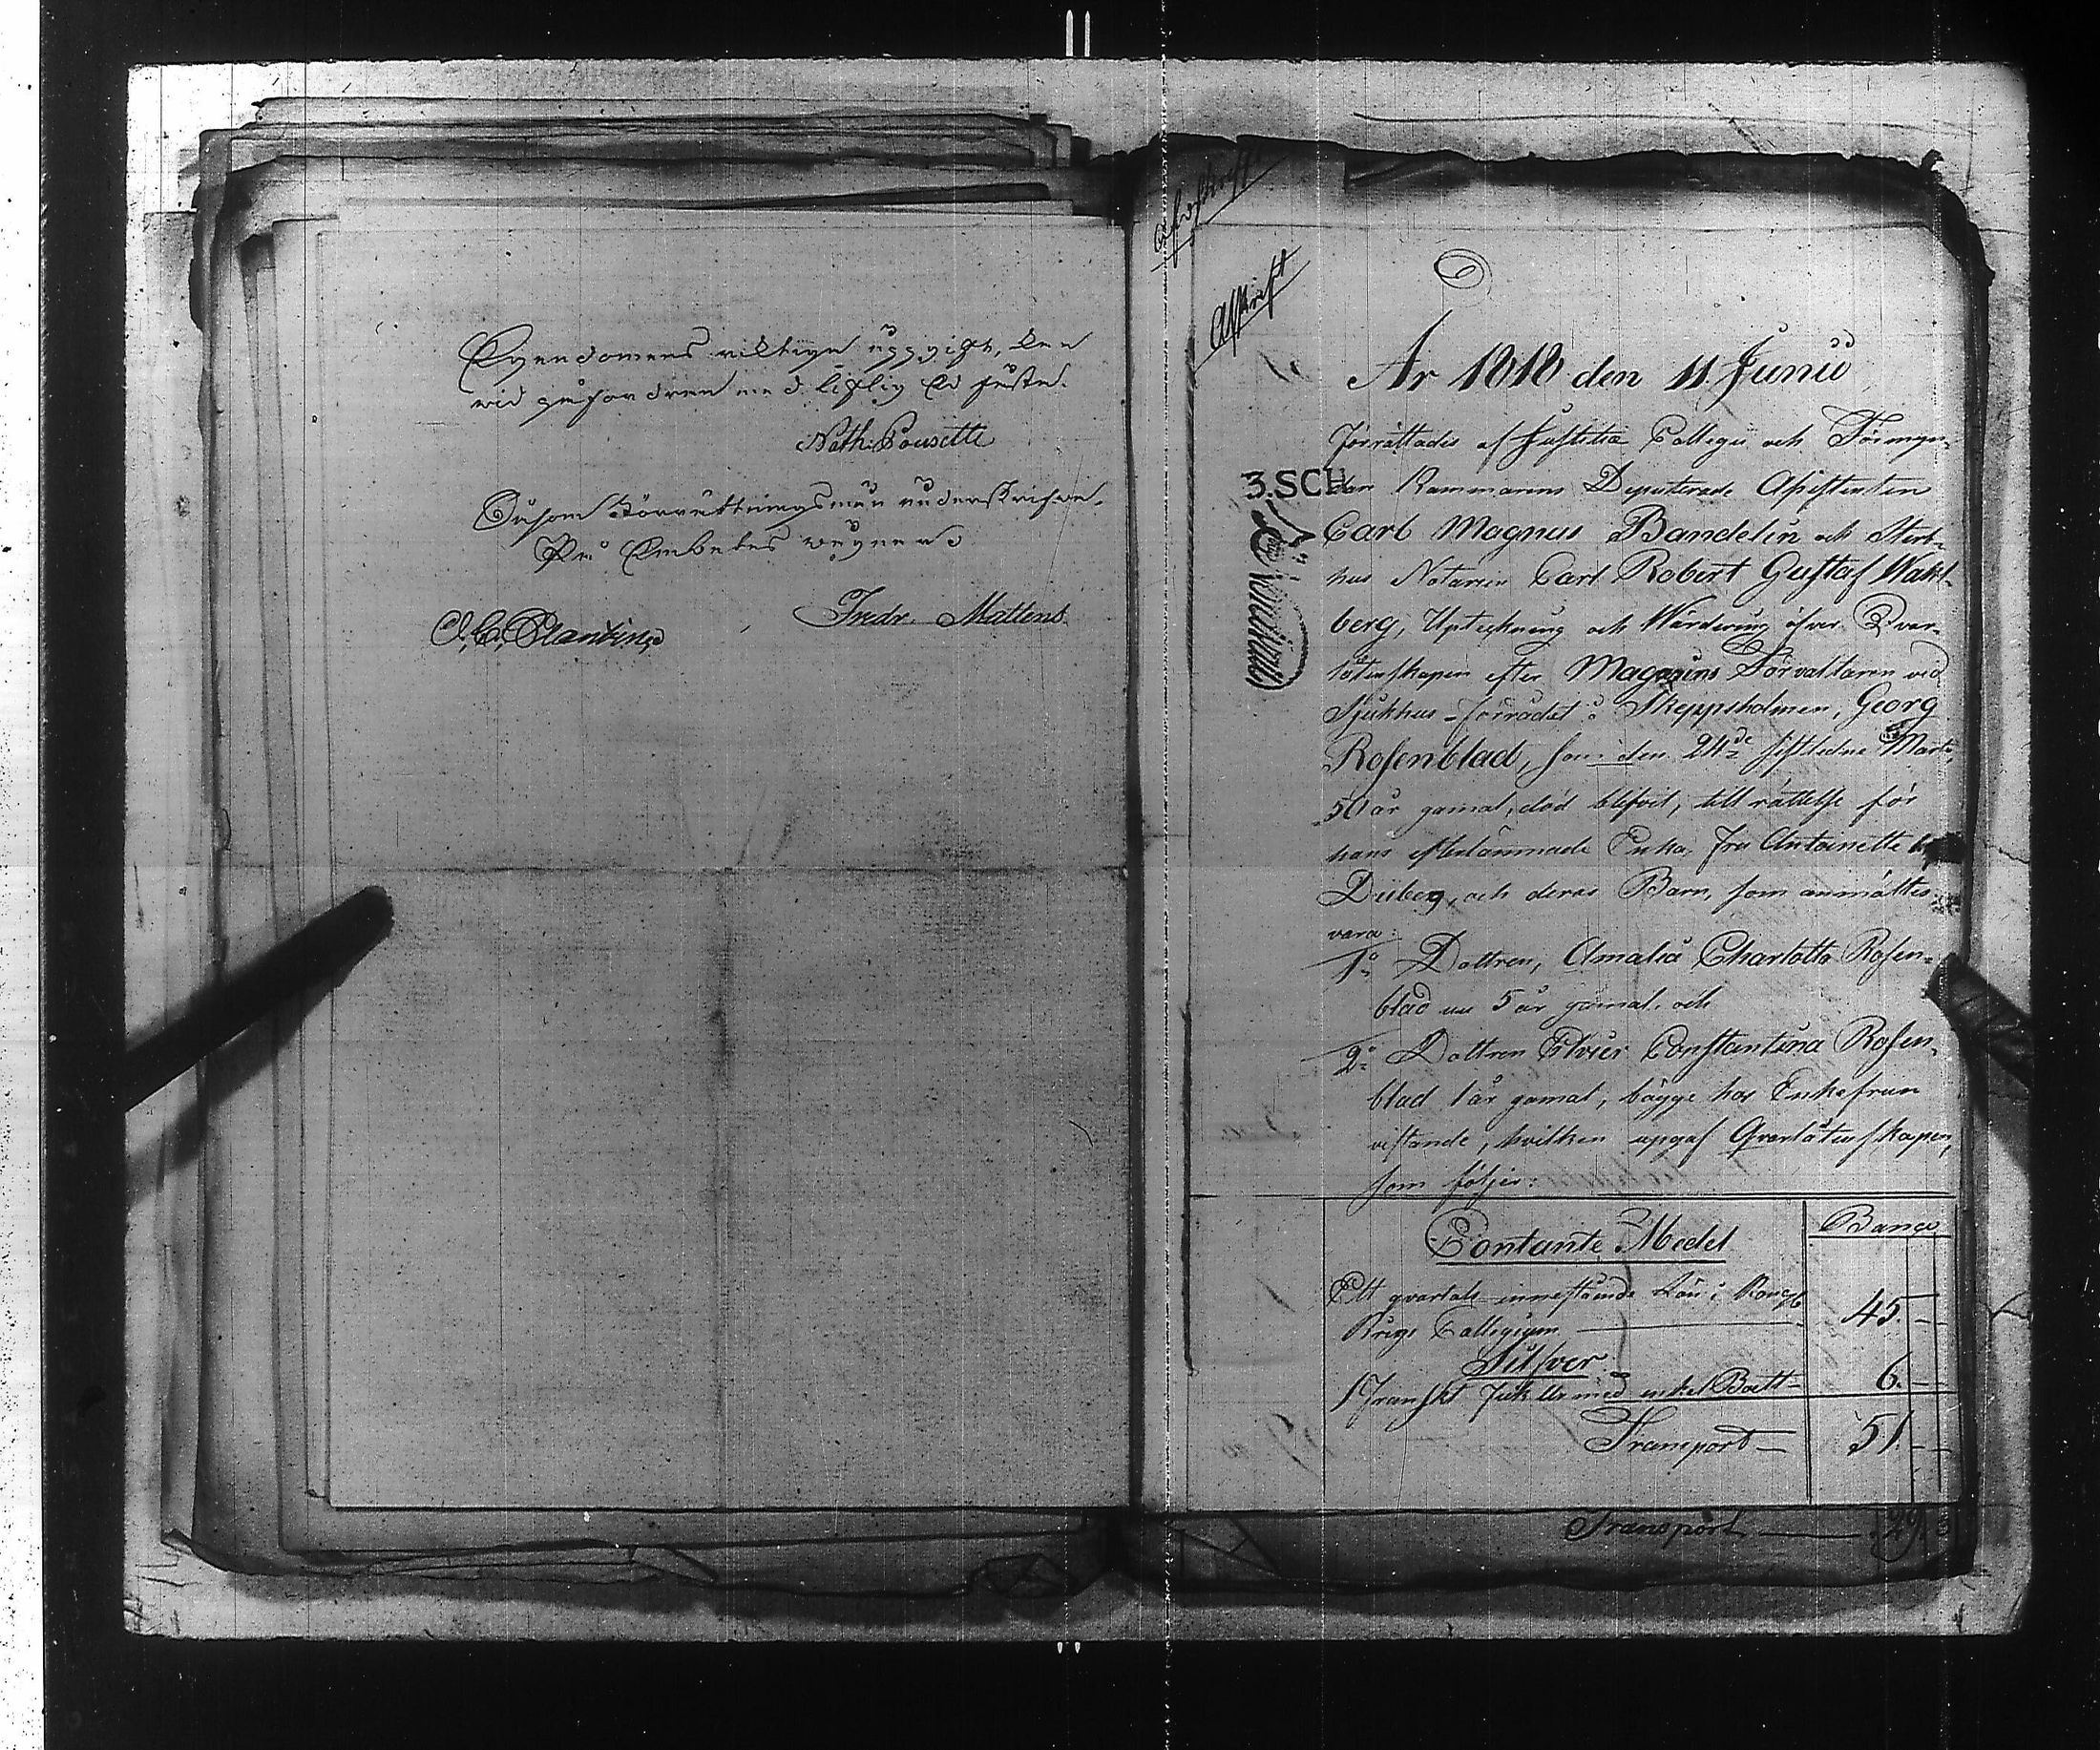 Egendomens riktiga uppgift, kan
vid påfordran med liflig Ed fästa.
Nath: Pousette
Såsom Förrättningsmän underskrifva.
På Embetes wägnar
Fredr. Mattens
Afskrift
Afskrift
År 1818 den 11 Junii
förrättades af Justitiæ Collegii och Förmyn-
dare Kammarens Deputerade Assistenten
3.SCH
Carl Magnus Bandelin och Sterb-
hus Notarien Carl Robert Gustaf Wahl-
berg, Upteckning och Wärdering öfver Qvar-
låtenskapen efter Magazins Förvaltaren vid
Sjukhus-förrådet å Skeppsholmen, Georg
Rosenblad, som den 24de sistledne Martii,
50 år gamal, död blifvit, till rättelse för
hans efterlämnade Enka, Fru Antoinette
Duberg, och deras Barn, som anmältes
vara:
1o Dottren, Amalia Charlotta Rosen-
blad nu 5 år gamal, och
2o Dottren Elvier Constantina Rosen-
blad 1 år gamal, bägge hos Enkefrun
vistande, hvilken upgaf Qvarlåtenskapen,
som följer:
Contante Medel
Banco
Ett qvartals innestående Lön i Kongl.
Krigs Collegium 45. —
Silfver
1 Franskt fick Ur med enkel Boett 6. —
Transport 51. —
Transport 29.